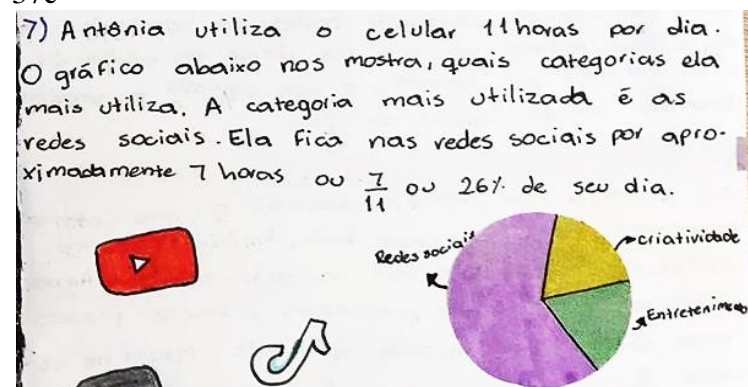 7) Antônia utiliza o celular 11 horas por dia.
O gráfico abaixo nos mostra, quais categorias ela
mais utiliza. A categoria mais utilizada é as
redes sociais. Ela fica nas redes sociais por apro-
ximadamente 7 horas ou 7/11 ou 26% de seu dia.
Redes sociais
criatividade
Entretenimento